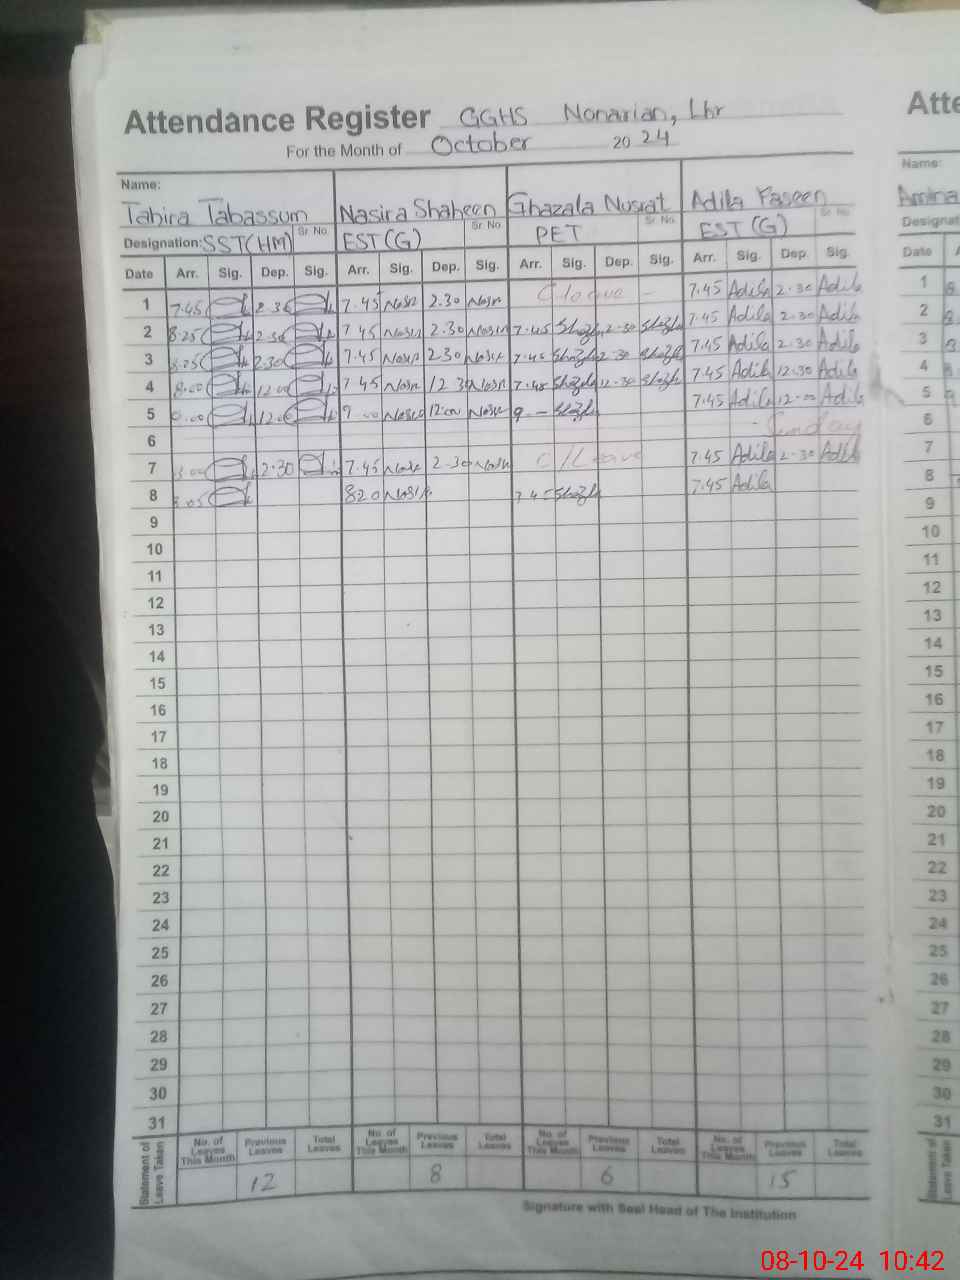 Attendance Register GGHS Nonarian, Lhr
Atte
For the Month of October 20 24
Name:
Name:
Tahira Tabassum Nasira Shaheen Ghazala Nusrat Adila Yaseen
Amina
Designation: SST(HM) Sr No. EST(G) Sr No. PET Sr No. EST(G) Sr No.
Designat
Date Arr. Sig. Dep. Sig. Arr. Sig. Dep. Sig. Arr. Sig. Dep. Sig. Arr. Sig. Dep. Sig.
Date
1 7.45 2.30 7.45 Nasir 2.30 Nasir C leave - 7.45 Adila 2.30 Adila
1
2 8.25 2.30 7 45 Nasir 2.30 Nasir 7.45 2.30 7.45 Adila 2.30 Adila
2
3 8.25 2.30 7.45 Nasir 2.30 Nasir 7.45 2.30 7.45 Adila 2.30 Adila
3
4 8.00 12.00 7 45 Nasir 12.30 Nasir 7.45 12.30 7.45 Adila 12.30 Adila
4
5 12.00 9.00 Nasir 12.00 Nasir 9 - 7.45 Adila 12.00 Adila
5
6 - Sunday
6
7 8.00 2.30 7.45 Nasir 2.30 Nasir C/Leave 7.45 Adila 2.30 Adila
7
8 8.05 820 Nasir 7 45 7.45 Adila
8
9
9
10
10
11
11
12
12
13
13
14
14
15
15
16
16
17
17
18
18
19
19
20
20
21
21
22
22
23
23
24
24
25
25
26
26
27
27
28
28
29
29
30
30
31
31
Statement of Leave Taken
No. of Leaves This Month Previous Leaves Total Leaves No. of Leaves This Month Previous Leaves Total Leaves No. of Leaves This Month Previous Leaves Total Leaves No. of Leaves This Month Previous Leaves Total Leaves
12 8 6 15
Signature with Seal Head of The Institution
08-10-24 10:42